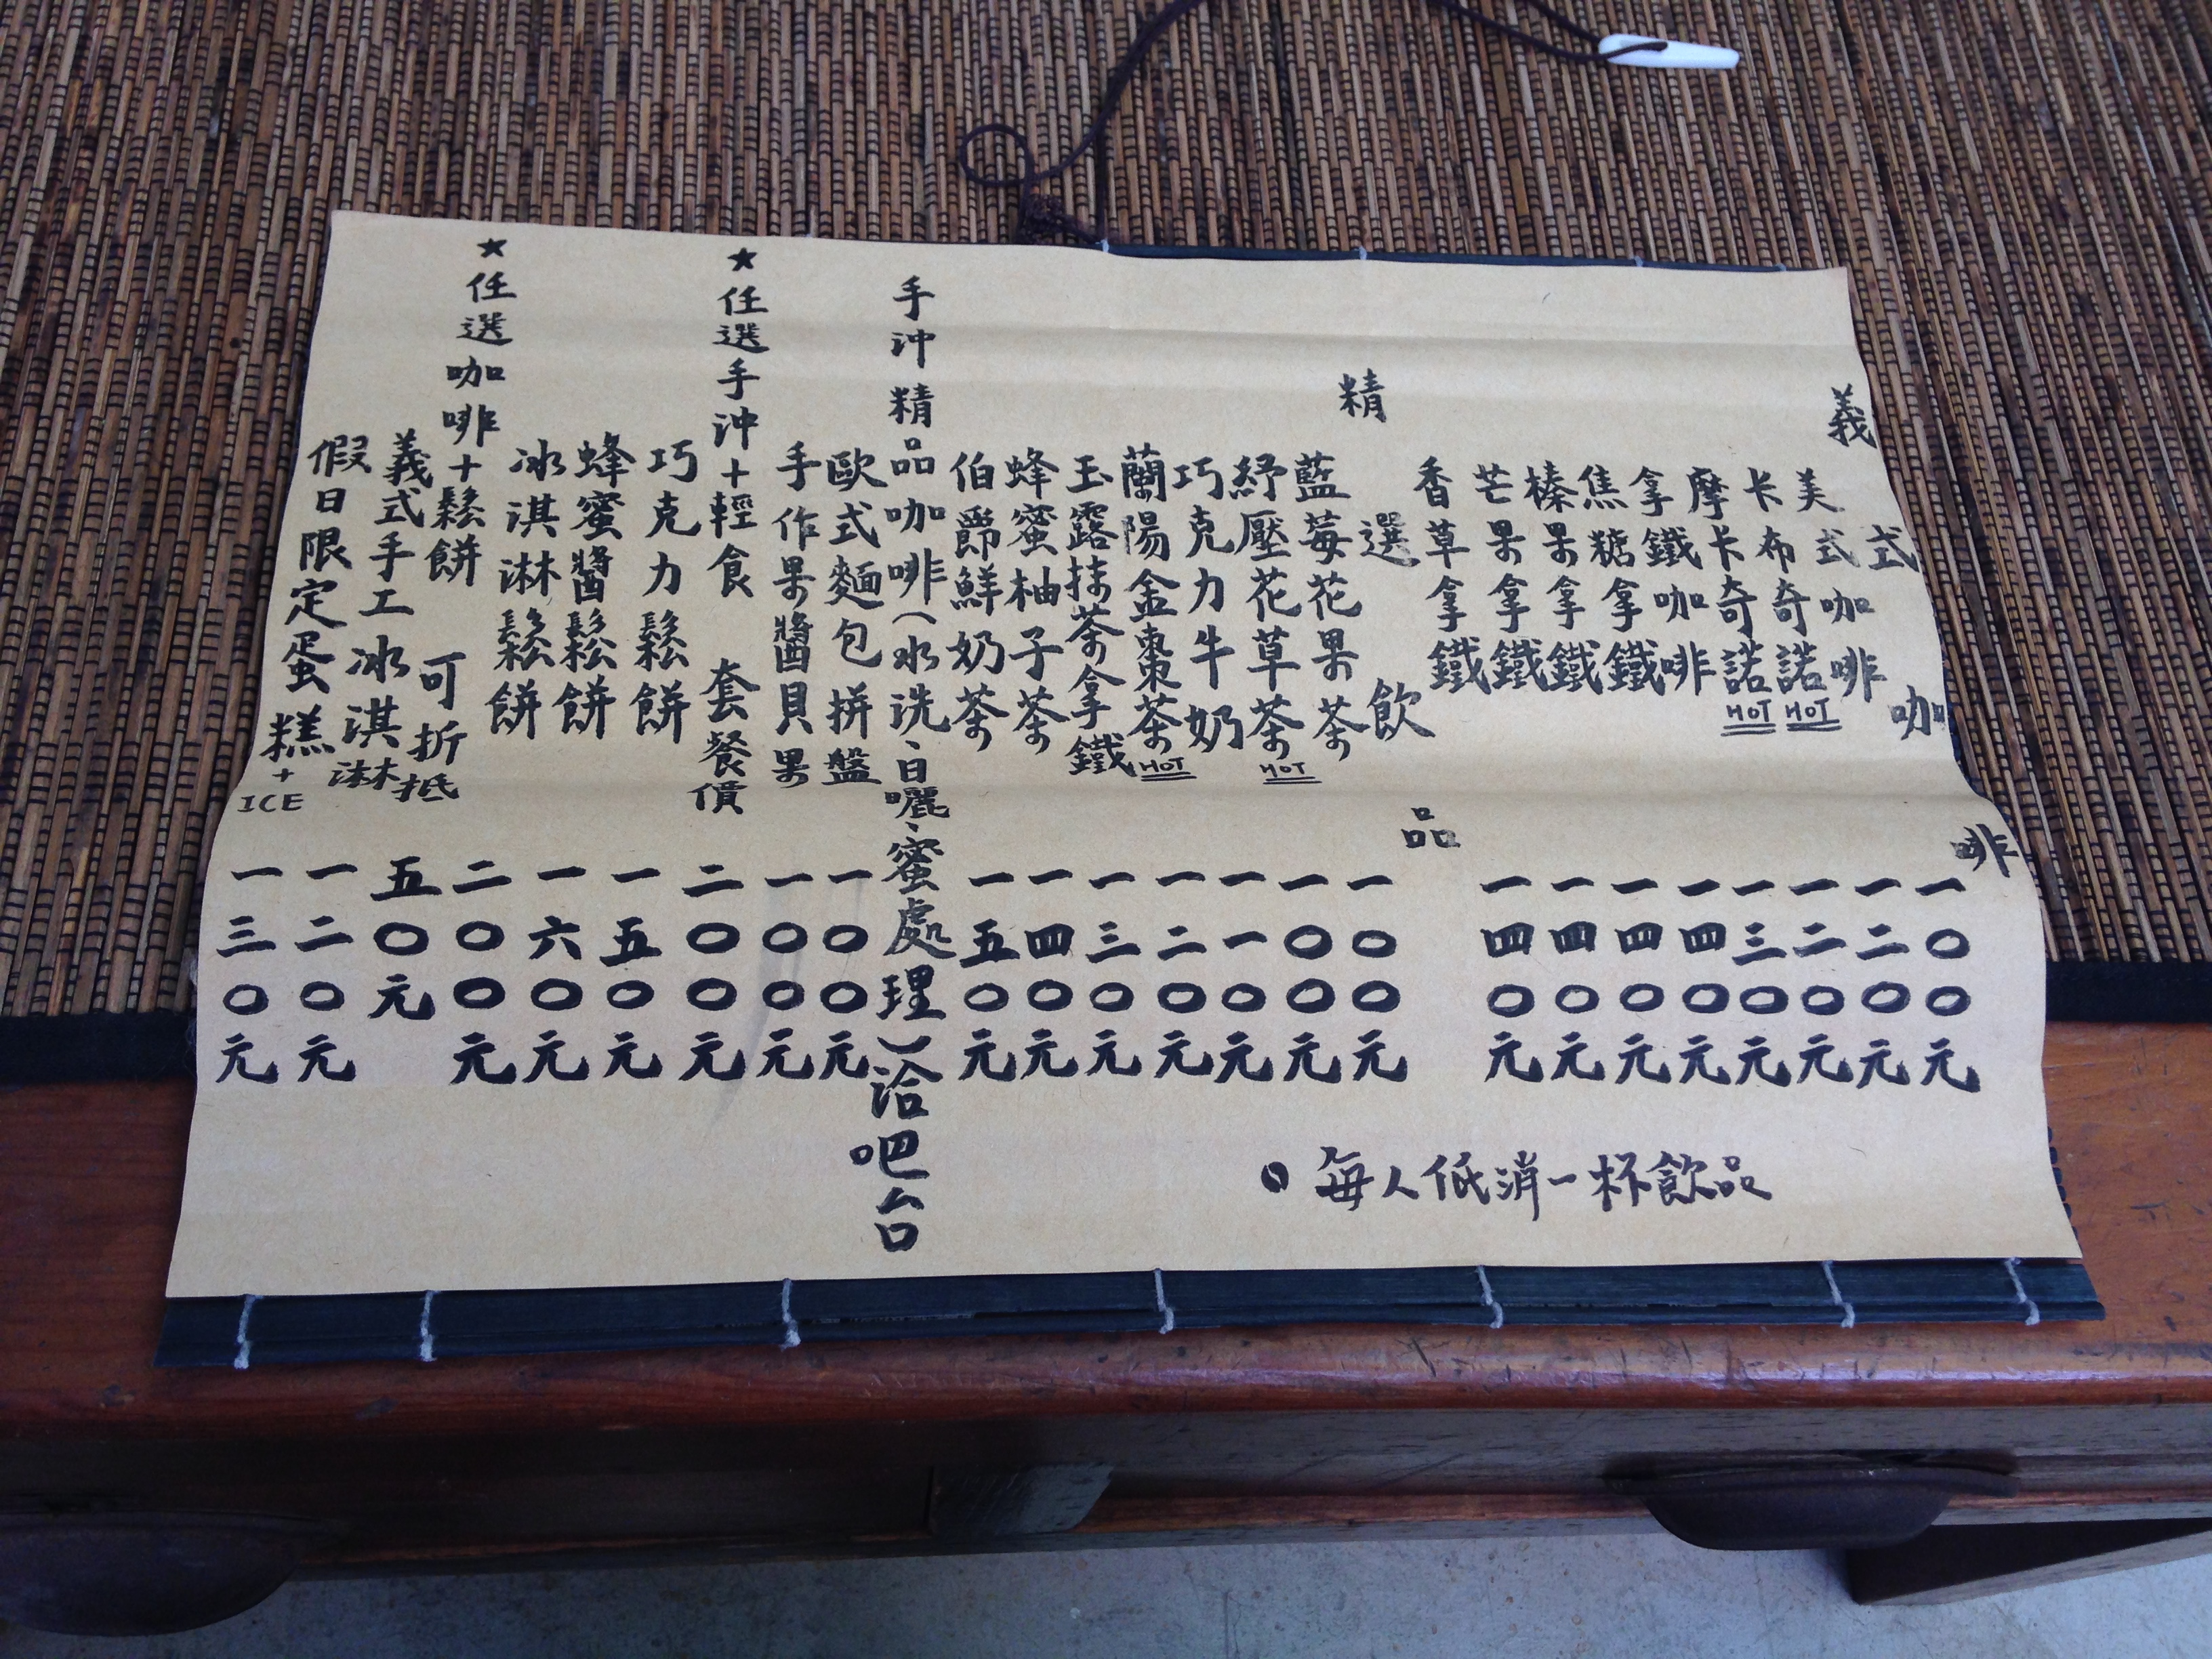 義式咖啡
美式咖啡 一〇〇元
卡布奇諾 HOT 一二〇元
摩卡奇諾 HOT 一二〇元
拿鐵咖啡 一三〇元
焦糖拿鐵 一四〇元
榛果拿鐵 一四〇元
芒果拿鐵 一四〇元
香草拿鐵 一四〇元
精選飲品
藍莓花果茶 一〇〇元
紓壓花草茶 HOT 一〇〇元
巧克力牛奶 一一〇元
蘭陽金棗茶 HOT 一二〇元
玉露抹茶拿鐵 一三〇元
蜂蜜柚子茶 一四〇元
伯爵鮮奶茶 一五〇元
手沖精品咖啡(水洗、日曬、蜜處理)洽吧台
歐式麵包拼盤 一〇〇元
手作果醬貝果 一〇〇元
★任選手沖+輕食 套餐價 二〇〇元
巧克力鬆餅 一五〇元
蜂蜜醬鬆餅 一六〇元
冰淇淋鬆餅 二〇〇元
★任選咖啡+鬆餅 可折抵 五〇元
義式手工冰淇淋 一二〇元
假日限定蛋糕+ICE 一三〇元
每人低消一杯飲品